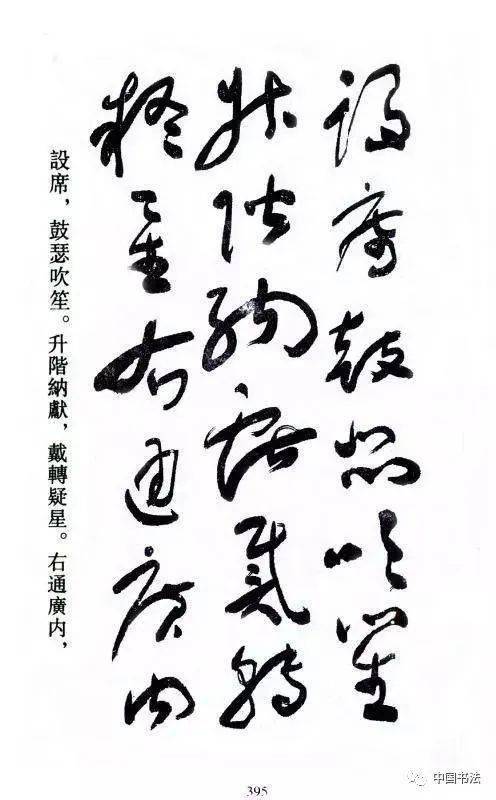 設席鼓瑟吹笙
升階納獻戴轉
疑星右通廣内
設席，鼓瑟吹笙。升階納獻，戴轉疑星。右通廣内，
395
中国书法